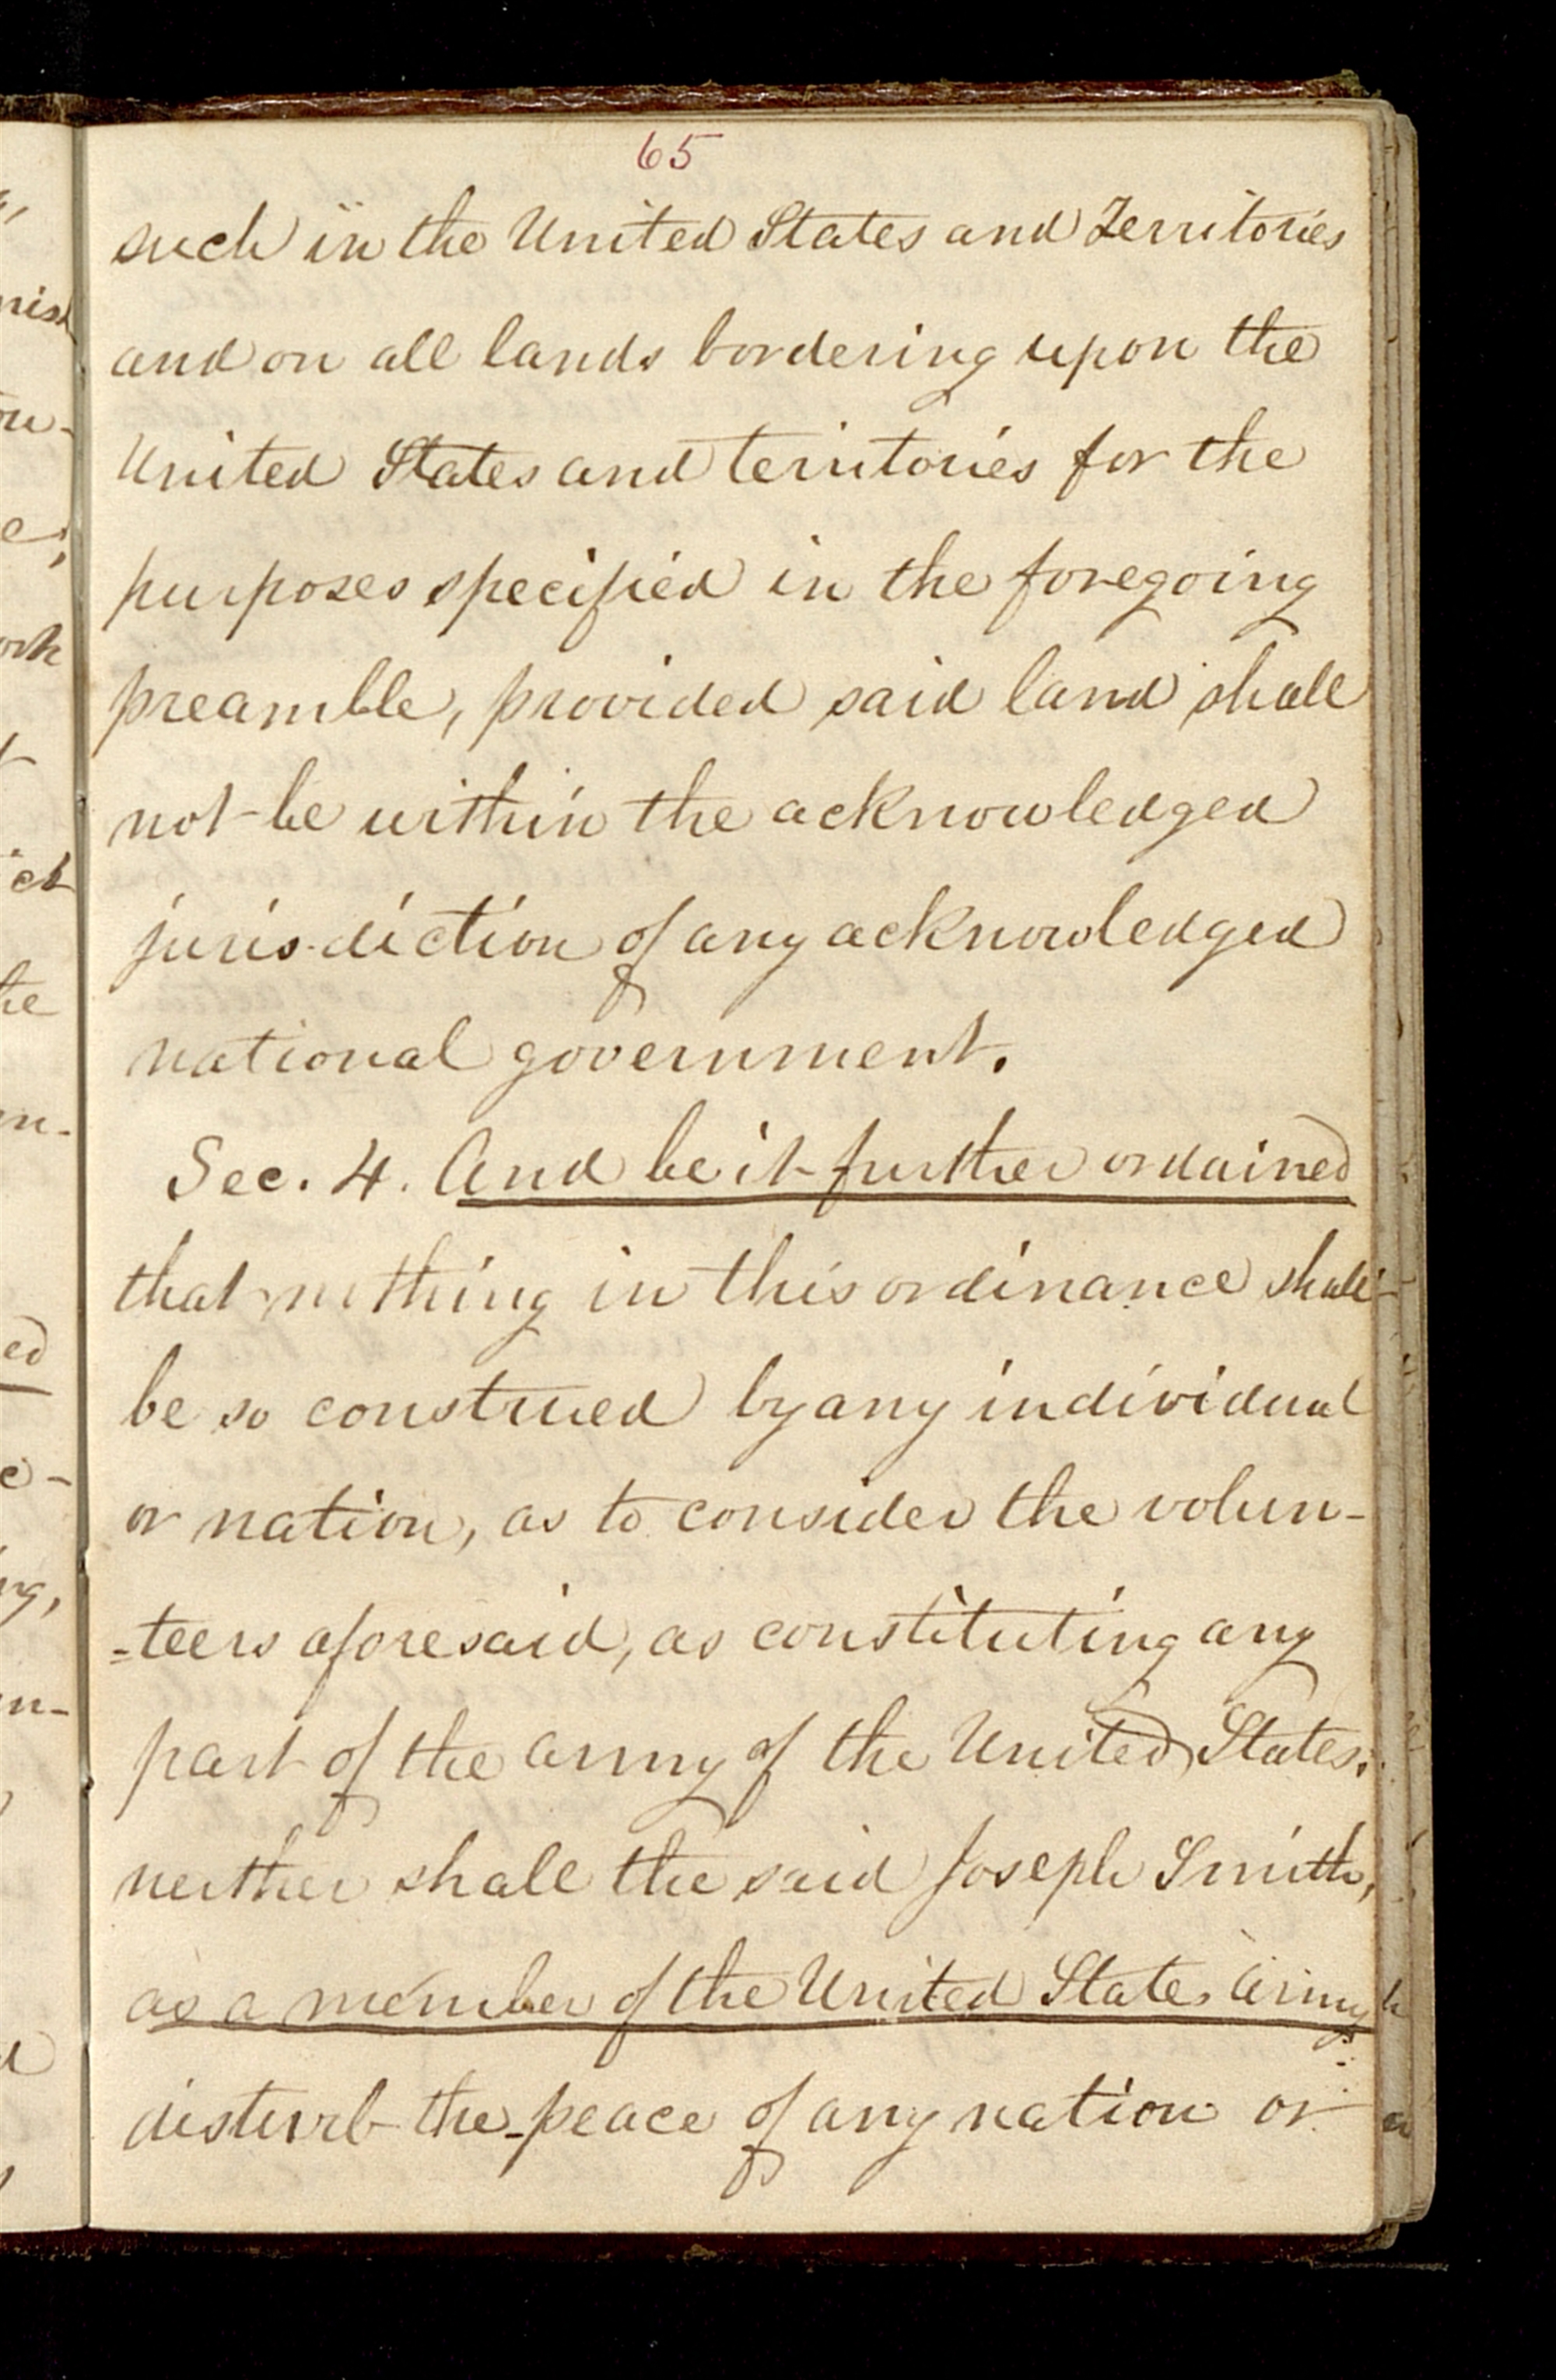 65
such in the United States and Territories
and on all lands bordering upon the
United States and teritories for the
purposes specified in the foregoing
preamble, provided said land shall
not be within the acknowledged
juris-diction of any acknowledged
national government.
Sec. 4. And be it further ordained
that nothing in this ordinance shall
be so construed by any individual
or nation, as to consider the volun-
-teers aforesaid, as constituting any
part of the army of the United States.
neither shall the said Joseph Smith,
as a member of the United States Army
disturb the peace of any nation or